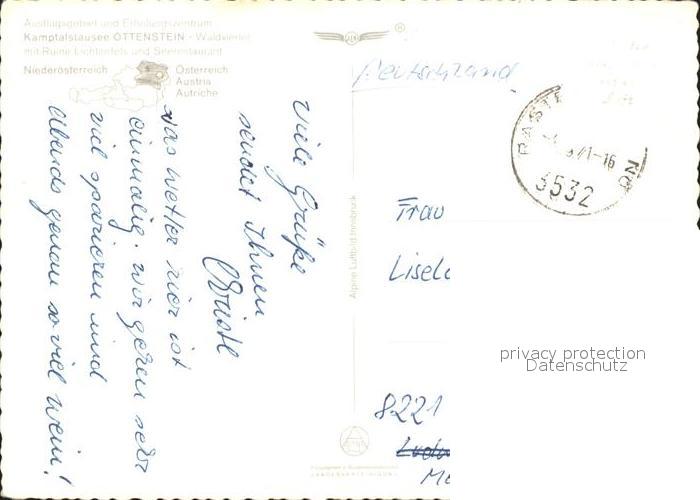 Ausflugsgebiet und Erholungszentrum
Kamptalstausee OTTENSTEIN - Waldviertel
mit Ruine Lichtenfels und Seerestaurant
Niederösterreich
Österreich
Austria
Autriche
Viele Grüße
sendet Ihnen
Christl
Das Wetter hier ist
einmalig. Wir gehen sehr
viel spazieren und
abends genau so viel Wein!
Alpine Luftbild Innsbruck
Deutschland
RAST NÖ
71-16
3532
Frau
Lisel
8221
privacy protection
Datenschutz